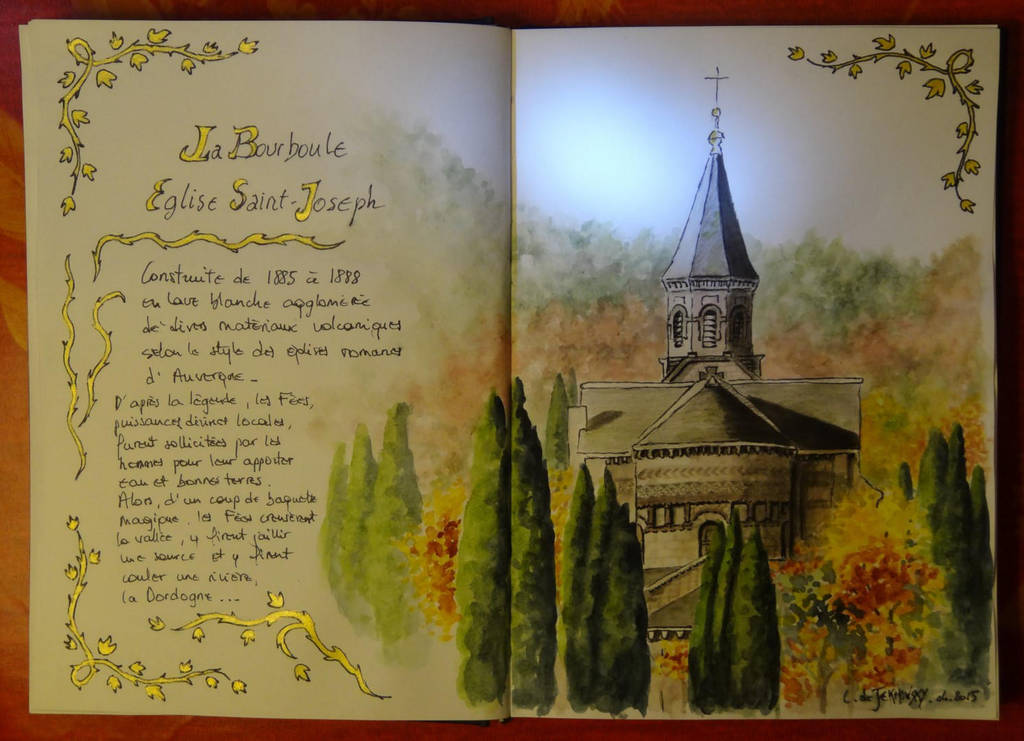 La Bourboule
Eglise Saint-Joseph
Construite de 1885 à 1888
en lave blanche agglomérée
de divers matériaux volcaniques
selon le style des églises romanes
d'Auvergne -
D'après la légende, les Fées,
puissances divines locales,
furent sollicitées par les
hommes pour leur apporter
eau et bonnes terres.
Alors, d'un coup de baguette
magique, les Fées creusèrent
la vallée, y firent jaillir
une source et y firent
couler une rivière,
la Dordogne...
L. de 2015